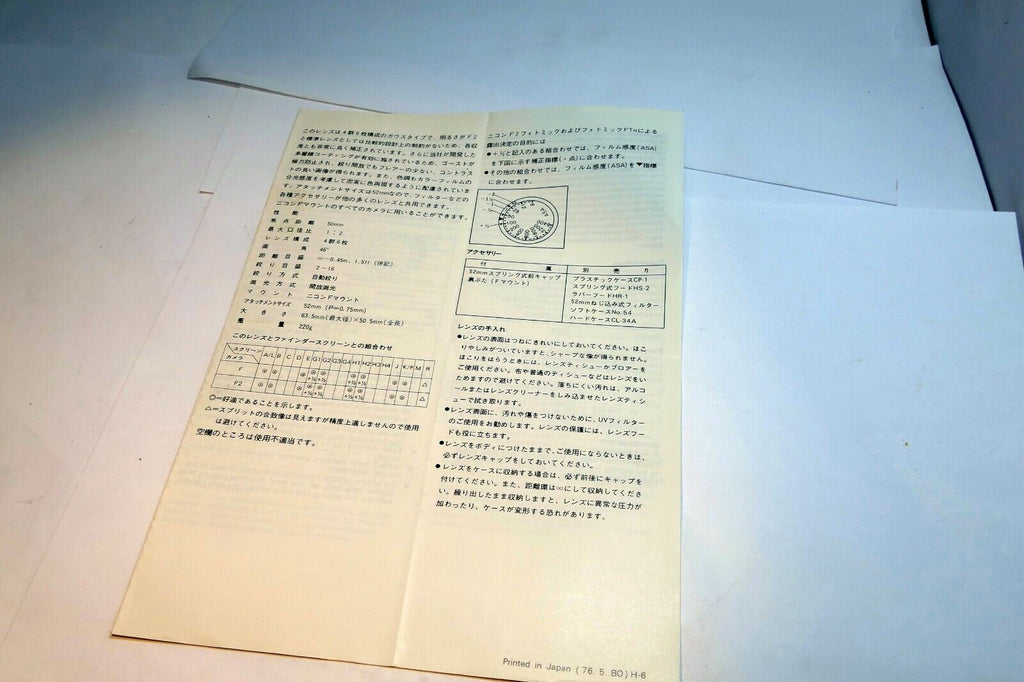 このレンズは4群6枚構成のガウスタイプで、明るさがF2
と標準レンズとしては比較的設計上の制約がないため、各収
差とも非常に良く補正されています。さらに当社が開発した
多層膜コーティングが有効に施されているため、ゴーストが
極力防止され、絞り開放でもフレアーの少ない、コントラス
トの良い画像が得られます。また、色調もカラーフィルムの
分光感度を考慮して忠実に色再現するように配慮されていま
す。アタッチメントサイズは52mmなので、フィルターなどの
各種アクセサリーが他の多くのレンズと共用できます。
ニコンFマウントのすべてのカメラに用いることができます。
性能
焦点距離 50mm
最大口径比 1:2
レンズ構成 4群6枚
画角 46°
距離目盛 ∞〜0.45m、1.5ft(併記)
絞り目盛 2〜16
絞り方式 自動絞り
測光方式 開放測光
マウント ニコンFマウント
アタッチメントサイズ 52mm (P=0.75mm)
大きさ 63.5mm(最大径)×50.5mm(全長)
重量 220g
このレンズとファインダースクリーンとの組合わせ
スクリーン カメラ A/L B C D E G1 G2 G3 G4 H1 H2 H3 H4 J K/P M R
F ◎ ◎ ◎ ◎ ◎ ◎ ◎ ◎ ◎ △
+½ +½ +½ +½
F2 ◎ ◎ ◎ ◎ ◎ ◎ ◎ ◎ ◎ △
+½ +½ +½ +½
◎=好適であることを示します。
△=スプリットの合致像は見えますが精度上適しませんので使用
は避けてください。
空欄のところは使用不適当です。
ニコンF2フォトミックおよびフォトミックFTNによる
露出決定の目的には
●+½と記入のある組合わせでは、フィルム感度(ASA)
を下図に示す補正指標(・点)に合わせます。
●その他の組合わせでは、フィルム感度(ASA)を▼指標
に合わせます。
アクセサリー
付属 別売り
52mmスプリング式前キャップ
裏ぶた(Fマウント)
プラスチックケースCP-1
スプリング式フードHS-2
ラバーフードHR-1
52mmねじ込み式フィルター
ソフトケースNo.54
ハードケースCL-34A
レンズの手入れ
●レンズの表面はつねにきれいにしておいてください。ほこ
りやしみがついていますと、シャープな像が得られません。
ほこりをはらうときには、レンズティシューかブロアーを
ご使用ください。布や普通のティシューなどはレンズをい
ためますので避けてください。落ちにくい汚れは、アルコ
ールまたはレンズクリーナーをしみ込ませたレンズティシ
ューで拭き取ります。
●レンズ表面に、汚れや傷をつけないために、UVフィルター
のご使用をお勧めします。レンズの保護には、レンズフー
ドも役に立ちます。
●レンズをボディにつけたままで、ご使用にならないときは、
必ずレンズキャップをしておいてください。
●レンズをケースに収納する場合は、必ず前後にキャップを
付けてください。また、距離環は∞にして収納してくださ
い。繰り出したまま収納しますと、レンズに異常な圧力が
加わったり、ケースが変形する恐れがあります。
Printed in Japan (76.5.BO) H-6